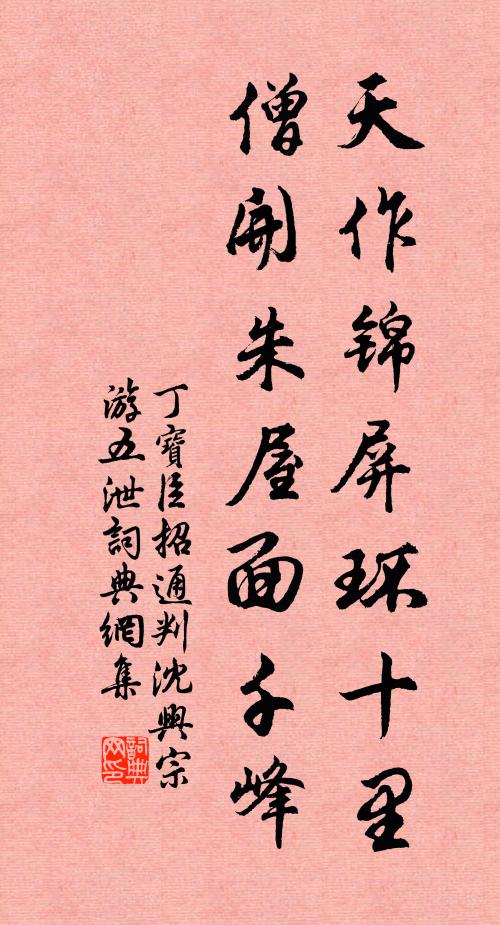 天作锦屏环十里
僧開朱屋面千峰
丁寶臣招通判沈興宗
游五泄詞典網集
詞典網印